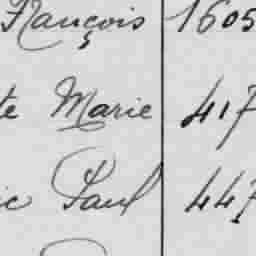 Français 1605
te Marie 417
ic Paul 447